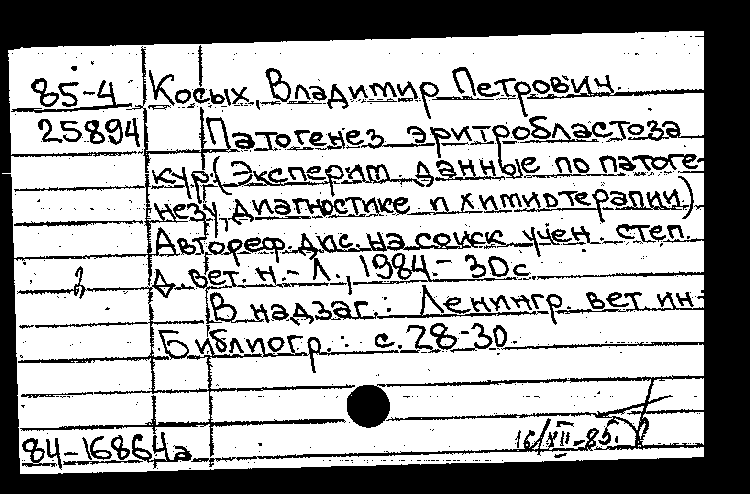 85-4 Косых, Владимир Петрович.
25894 Патогенез эритробластоза
кур: (Эксперим. данные по патоге-
незу, диагностике и химиотерапии)
Автореф. дис. на соиск. учен. степ.
д. вет. н. - Л., 1984. - 30с.
В надзаг.: Ленингр. вет. ин-
Библиогр.: с. 28-30.
84-16864а 16/XII-85.